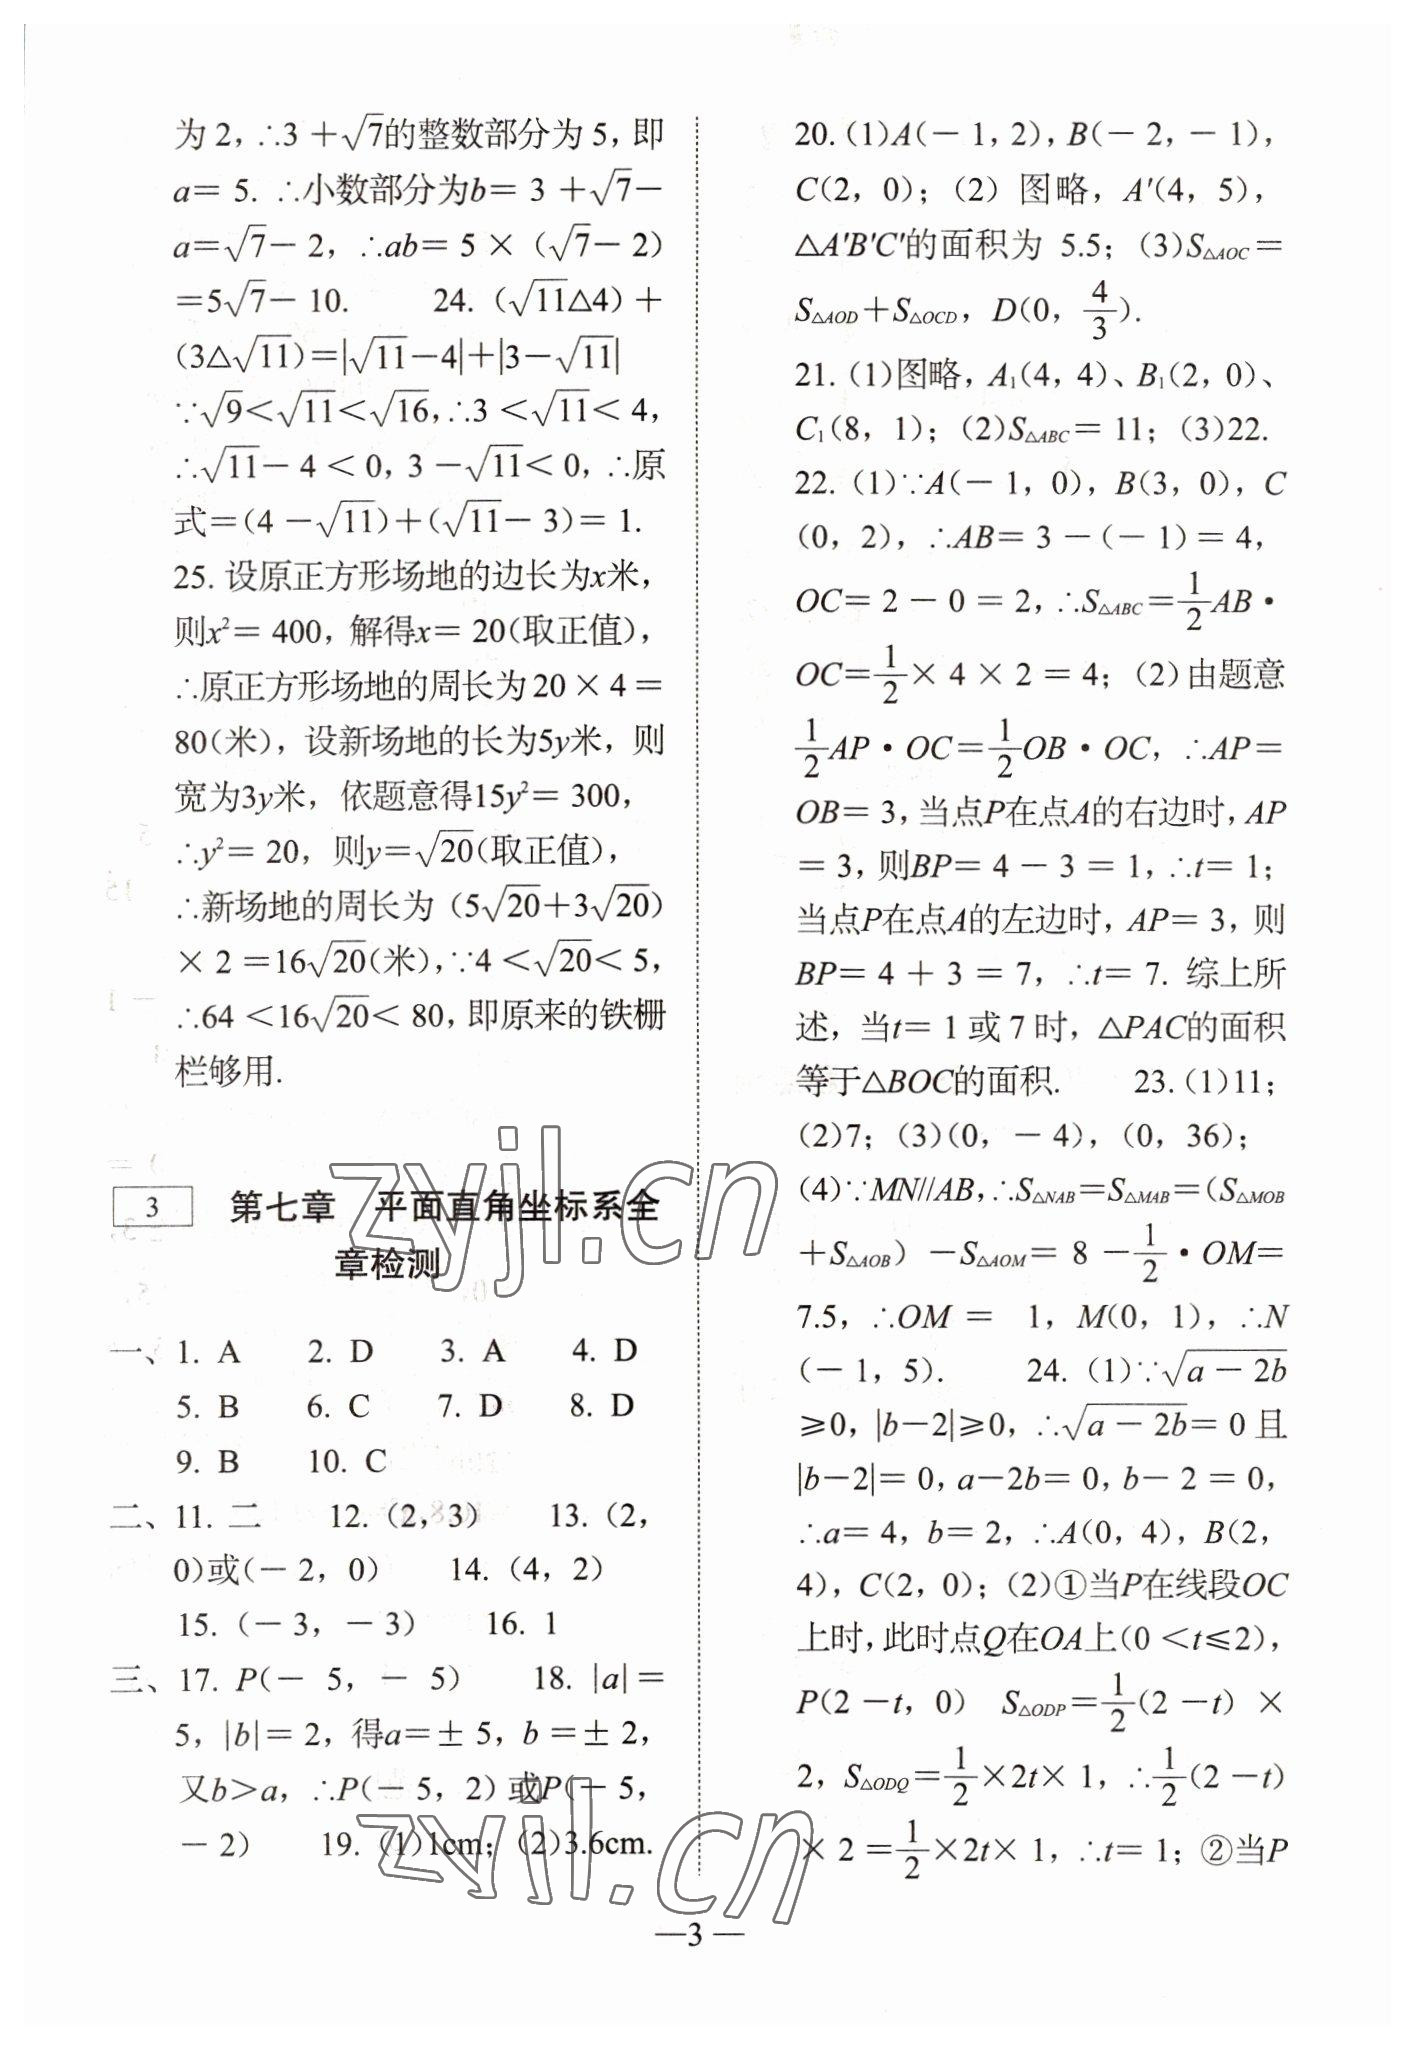 为 2，∴3 +√7的整数部分为 5，即
a= 5. ∴小数部分为b= 3 +√7−
a=√7− 2，∴ab= 5 ×（√7− 2）
=5√7− 10.  24.（√11△4）+
（3△√11）=|√11−4|+|3−√11|
∵√9<√11<√16，∴3 <√11< 4，
∴√11− 4 < 0，3 −√11< 0，∴原
式=(4 −√11)+(√11− 3)= 1.
25. 设原正方形场地的边长为x米，
则x²= 400，解得x= 20(取正值)，
∴原正方形场地的周长为 20 × 4 =
80(米)，设新场地的长为5y米，则
宽为3y米，依题意得15y²= 300，
∴y²= 20，则y=√20(取正值)，
∴新场地的周长为（5√20+3√20）
× 2 =16√20(米)，∵4 <√20< 5，
∴64 <16√20< 80，即原来的铁栅
栏够用.
3 第七章　平面直角坐标系全
章检测
一、1. A  2. D  3. A  4. D
5. B  6. C  7. D  8. D
9. B  10. C
二、11. 二  12.（2，3）  13.（2，
0)或(− 2，0）  14.（4，2）
15.（− 3，− 3）  16. 1
三、17. P(− 5，− 5）  18. |a| =
5，|b|= 2，得a=± 5，b =± 2，
又b>a，∴P(− 5，2）或P(− 5，
− 2）  19.（1)1cm；(2)3.6cm.
20.（1)A(− 1，2)，B(− 2，− 1)，
C(2，0)；（2）图略，A′(4，5)，
△A′B′C′的面积为 5.5；（3)S△AOC =
S△AOD+S△OCD，D(0，4/3).
21.（1)图略，A₁(4，4)、B₁(2，0)、
C₁(8，1)；（2)S△ABC= 11；（3)22.
22.（1)∵A(− 1，0)，B(3，0)，C
(0，2)，∴AB= 3 −(− 1) = 4，
OC= 2 − 0 = 2，∴S△ABC=1/2AB·
OC=1/2× 4 × 2 = 4；（2）由题意
1/2AP·OC=1/2OB·OC，∴AP=
OB= 3，当点P在点A的右边时，AP
= 3，则BP= 4 − 3 = 1，∴t= 1；
当点P在点A的左边时，AP= 3，则
BP= 4 + 3 = 7，∴t= 7. 综上所
述，当t= 1 或 7 时，△PAC的面积
等于△BOC的面积.  23.（1)11；
(2)7；（3)(0，− 4)，（0，36)；
(4)∵MN//AB，∴S△NAB=S△MAB=（S△MOB
+S△AOB）−S△AOM= 8 −1/2·OM=
7.5，∴OM = 1，M(0，1)，∴N
(− 1，5).  24.（1)∵√(a − 2b)
≥0，|b−2|≥0，∴√(a − 2b)= 0 且
|b−2|= 0，a−2b= 0，b− 2 = 0，
∴a= 4，b= 2，∴A(0，4)，B(2，
4)，C(2，0)；（2)①当P在线段OC
上时，此时点Q在OA上(0 <t≤2)，
P(2 −t，0) S△ODP=1/2(2 −t) ×
2，S△ODQ=1/2×2t× 1，∴1/2(2 −t)
× 2 =1/2×2t× 1，∴t= 1；②当P
—3 —
zyjl.cn
zyjl.cn